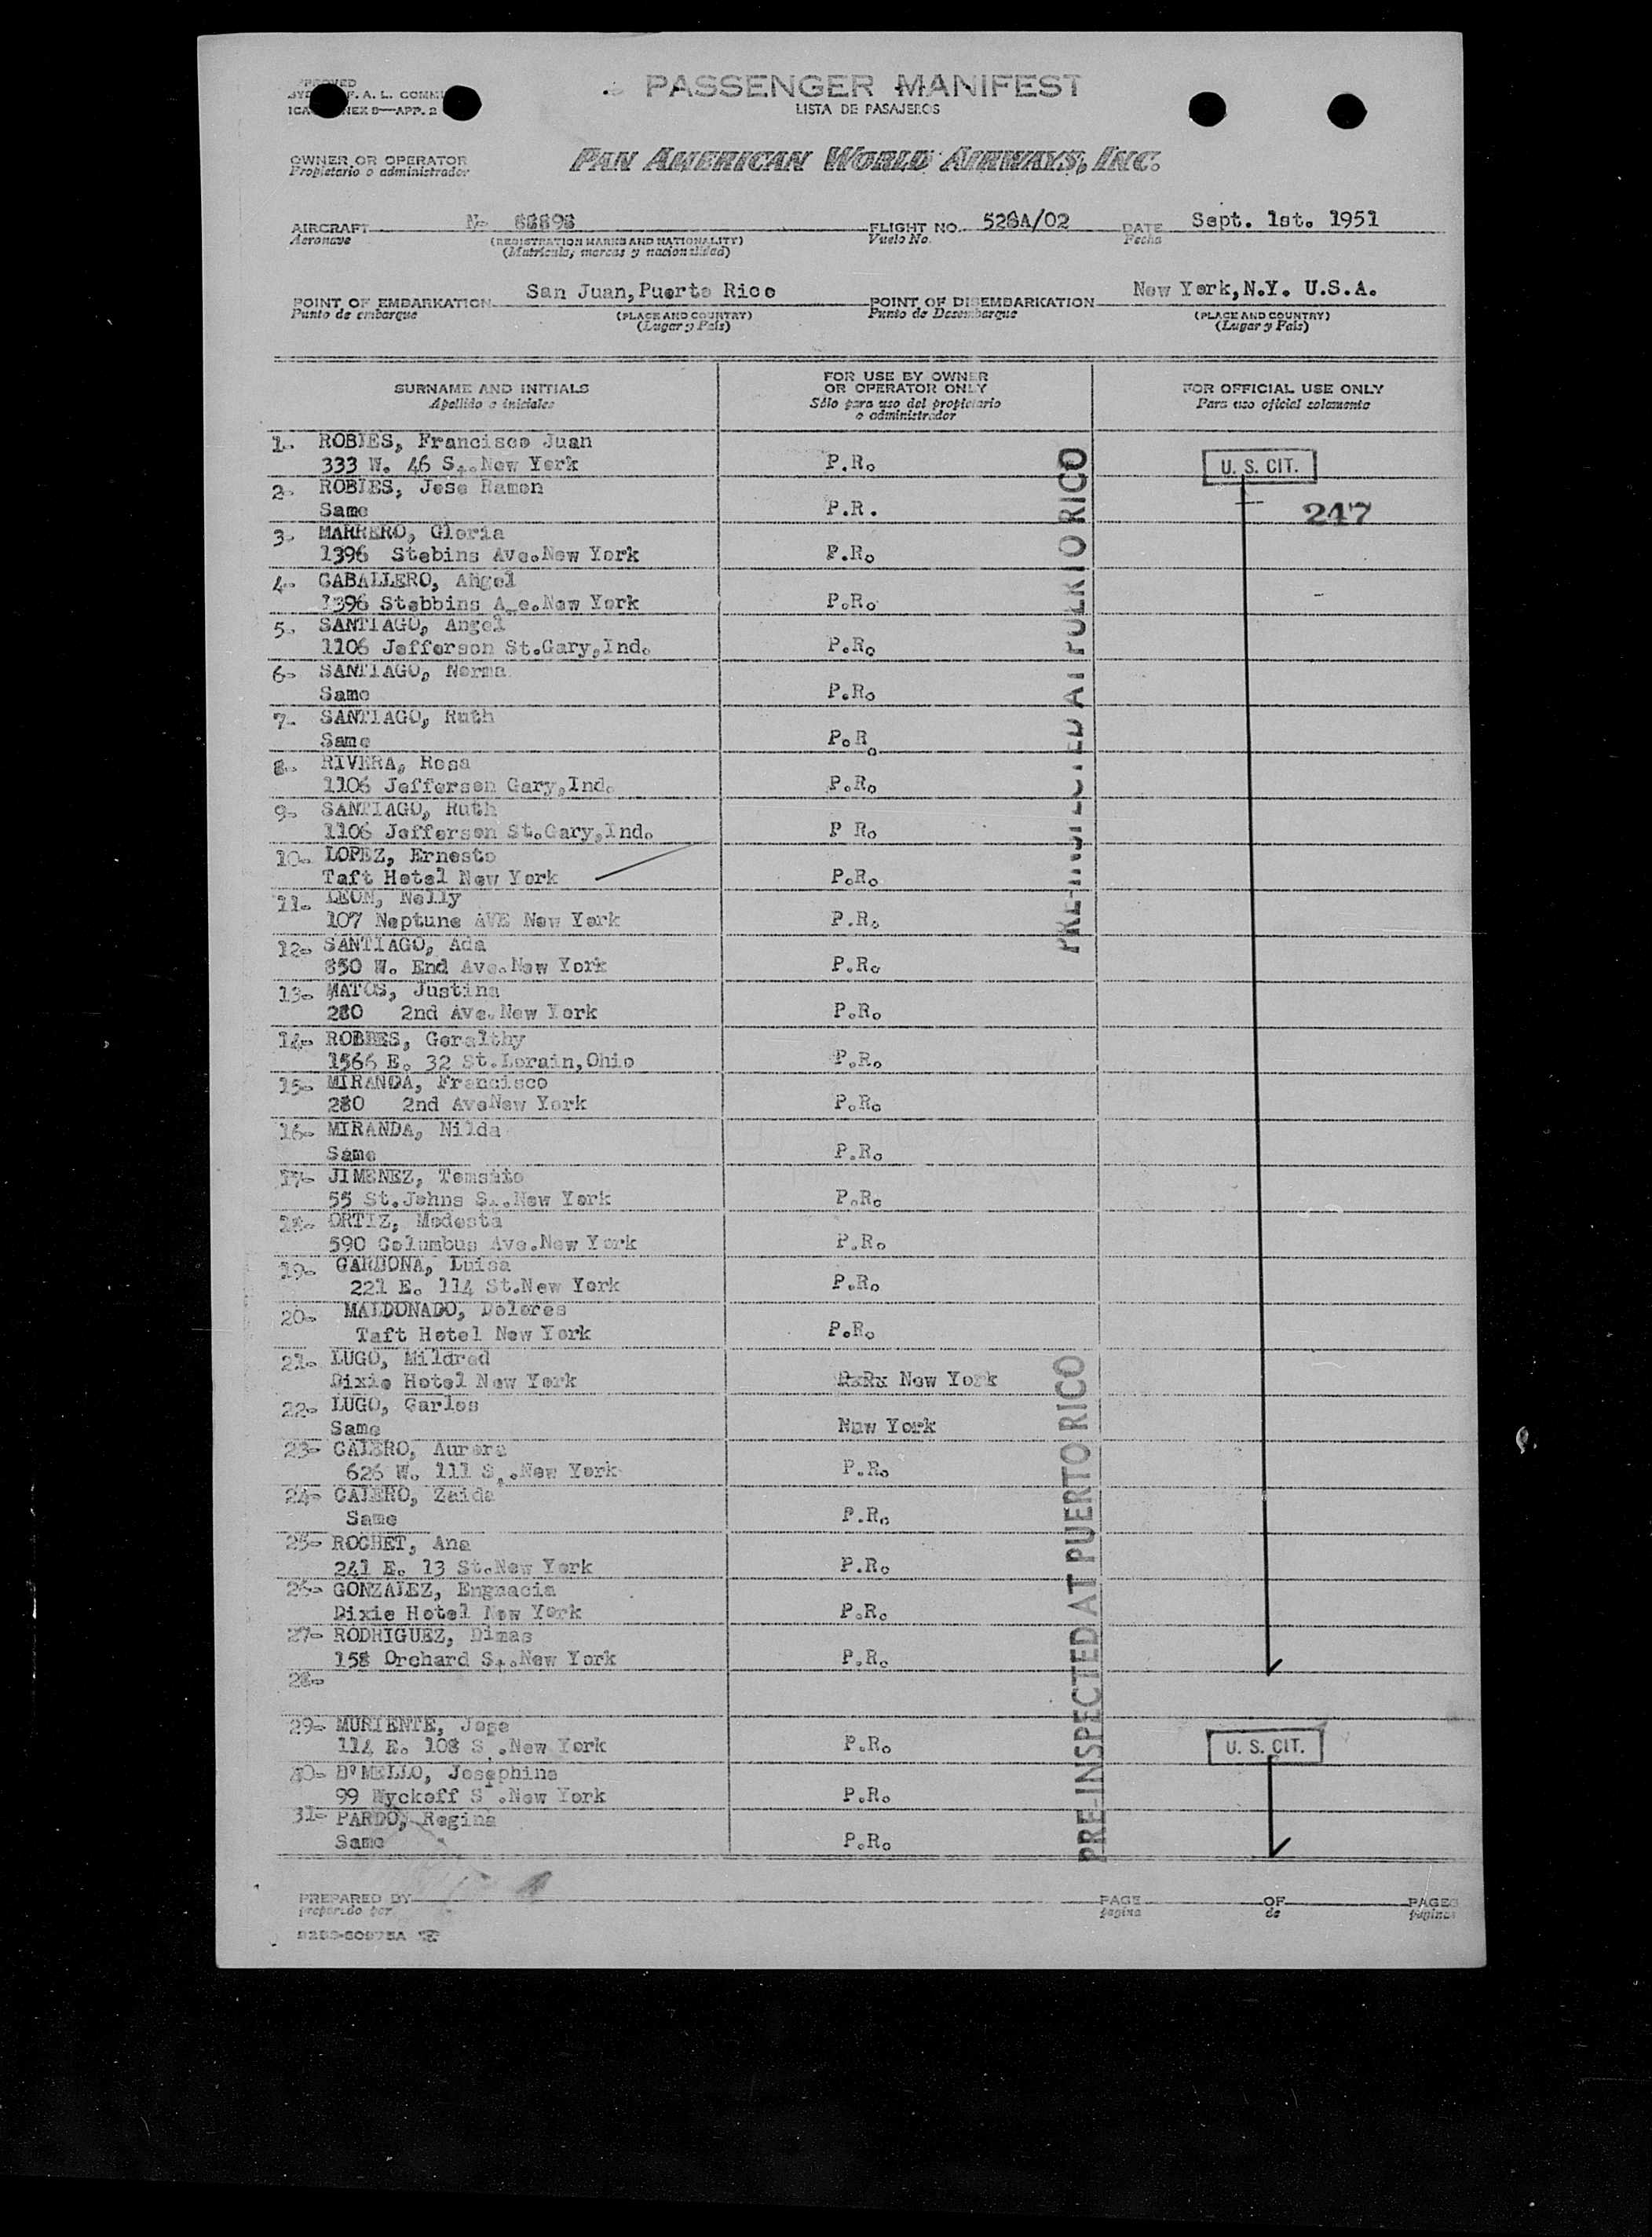 PASSENGER MANIFEST
LISTA DE PASAJEROS
F. A. L.
APP. 2
OWNER OR OPERATOR
Propietario o administrador
PAN AMERICAN WORLD AIRWAYS, INC.
AIRCRAFT
Aeronave
(REGISTRATION MARKS AND NATIONALITY)
(Matrícula, marcas y nacionalidad)
FLIGHT NO. 526A/02
Vuelo No.
DATE Sept. 1st. 1951
Fecha
POINT OF EMBARKATION San Juan, Puerto Rico
Punto de embarque
(PLACE AND COUNTRY)
(Lugar y País)
POINT OF DISEMBARKATION New York, N.Y. U.S.A.
Punto de Desembarque
(PLACE AND COUNTRY)
(Lugar y País)
SURNAME AND INITIALS
Apellido e iniciales
FOR USE BY OWNER
OR OPERATOR ONLY
Sólo para uso del propietario
o administrador
FOR OFFICIAL USE ONLY
Para uso oficial solamente
1- ROBLES, Francisco Juan
333 W. 46 St. New York P.R. U. S. CIT.
2- ROBLES, Jose Ramon
Same P.R. 247
3- MARRERO, Gloria
1396 Stebins Ave. New York P.R.
4- CABALLERO, Angel
1396 Stebbins Ave. New York P.R.
5- SANTIAGO, Angel
1106 Jefferson St. Gary, Ind. P.R.
6- SANTIAGO, Norma
Same P.R.
7- SANTIAGO, Ruth
Same P.R.
8- RIVERA, Rosa
1106 Jefferson Gary, Ind. P.R.
9- SANTIAGO, Ruth
1106 Jefferson St. Gary, Ind. P R.
10- LOPEZ, Ernesto
Taft Hotel New York P.R.
11- LEON, Nelly
107 Neptune AVE New York P.R.
12- SANTIAGO, Ada
850 W. End Ave. New York P.R.
13- MATOS, Justina
280 2nd Ave. New York P.R.
14- ROBLES, Geralthy
1566 E. 32 St. Lorain, Ohio P.R.
15- MIRANDA, Francisco
280 2nd Ave New York P.R.
16- MIRANDA, Nilda
Same P.R.
17- JIMENEZ,
55 St. Johns St. New York P.R.
18- ORTIZ, Modesta
590 Columbus Ave. New York P.R.
19- CARDONA, Luisa
221 E. 114 St. New York P.R.
20- MALDONADO, Dolores
Taft Hotel New York P.R.
21- LUGO, Mildred
Dixie Hotel New York New York
22- LUGO, Carlos
Same New York
23- CALERO, Aurora
626 W. 111 St. New York P.R.
24- CALERO, Zaida
Same P.R.
25- ROCHET, Ana
241 E. 13 St. New York P.R.
26- GONZALEZ, Engnacia
Dixie Hotel New York P.R.
27- RODRIGUEZ, Dimas
158 Orchard St. New York P.R.
28-
29- MURIENTE, Jose
114 E. 108 S .New York P.R. U. S. CIT.
30- D'MELLO, Josephine
99 Wyckoff St. New York P.R.
31- PARDO, Regina
Same P.R.
PRE-INSPECTED AT PUERTO RICO
PRE-INSPECTED AT PUERTO RICO
PREPARED BY
preparado por
PAGE OF PAGES
página de páginas